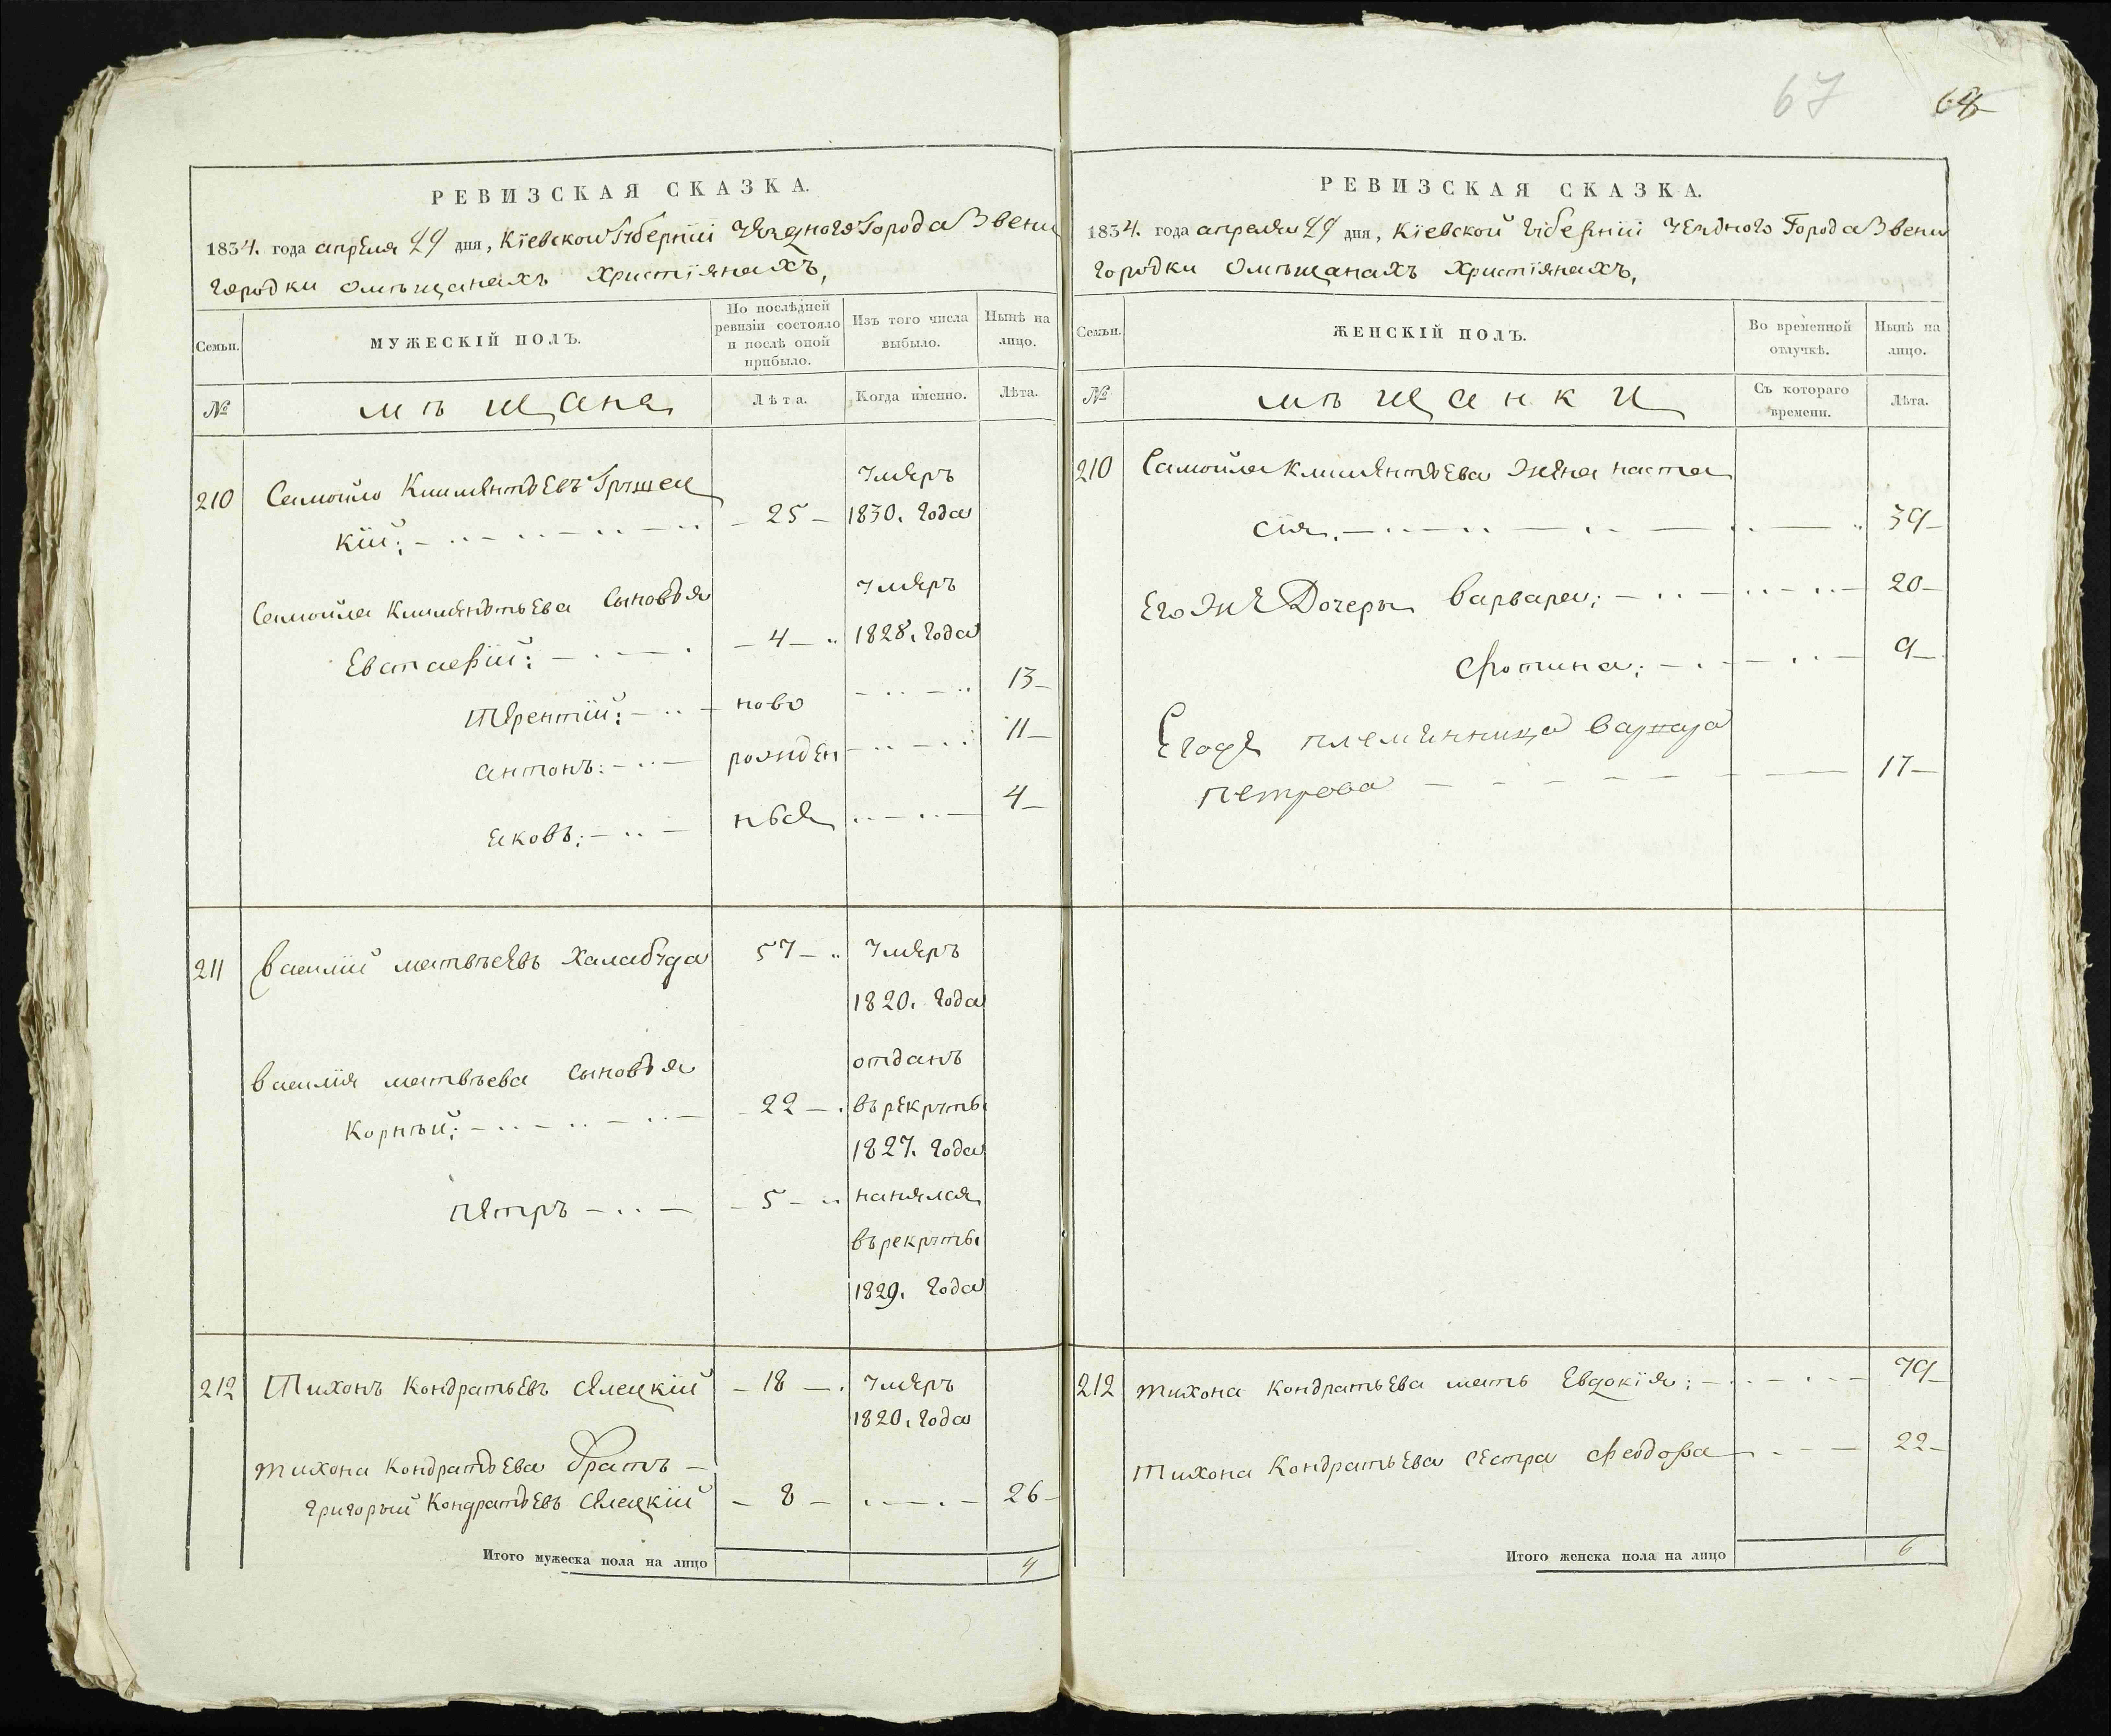 67
68
РЕВИЗСКАЯ СКАЗКА.
1834. года апреля 29 дня, Кіевской Губерніи Уезднаго Города Звени
городки Омѣщанахъ Христіянахъ,
Семьи.
МУЖЕСКІЙ ПОЛЪ.
По послѣдней ревизіи состояло и послѣ оной прибыло.
Изъ того числа выбыло.
Нынѣ на лицо.
№
мѣщане
Лѣта.
Когда именно.
Лѣта.
210 Самойло Климентьевъ Грушец
кій; 25 Умеръ 1830. года
Самойла Климентьева сыновья
Евстафій: 4 Умеръ 1828. года
Терентій: ново 13
антонъ: рожден 11
яковъ: ные 4
211 Василій матвѣевъ Халабуда 57 Умеръ
1820. года
Василія матвѣева сыновья
Корнѣй; 22 отданъ
въ рекруты
1827. года
Петръ 5 нанялся
въ рекруты
1829. года
212 Тихонъ Кондратьевъ Селецкій 18 Умеръ
1820. года
тихона Кондратьева братъ
григорый Кондратьевъ Селецкій 8 26
Итого мужеска пола на лицо 4
РЕВИЗСКАЯ СКАЗКА.
1834. года апреля 29 дня, Кіевской Губерніи Уезднаго Города Звени
городки Омѣщанахъ Христіянахъ,
Семьи.
ЖЕНСКІЙ ПОЛЪ.
Во временной отлучкѣ.
Нынѣ на лицо.
№
мѣщанки
Съ котораго времени.
Лѣта.
210 Самойла Климентьева Жена наста
сія, 39
Его Же Дочеры варвара; 20
Фотина; 9
Егоже племянница варвара
петрова 17
212 тихона Кондратьева мать Евдокія; 79
Тихона Кондратьева сестра Феодора 22
Итого женска пола на лицо 6